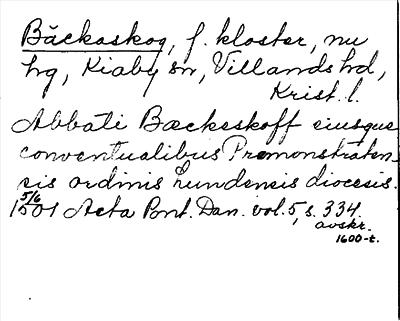 Bäckaskog, f. kloster, nu
hg, Kiaby sn, Villands hd,
Krist. l.
Abbati Bæckeskoff eiusque
conventualibus Premonstraten-
sis ordinis Lundensis diocesis.
5/6
1501 Acta Pont. Dan. vol. 5, s. 334.
avskr.
1600-t.